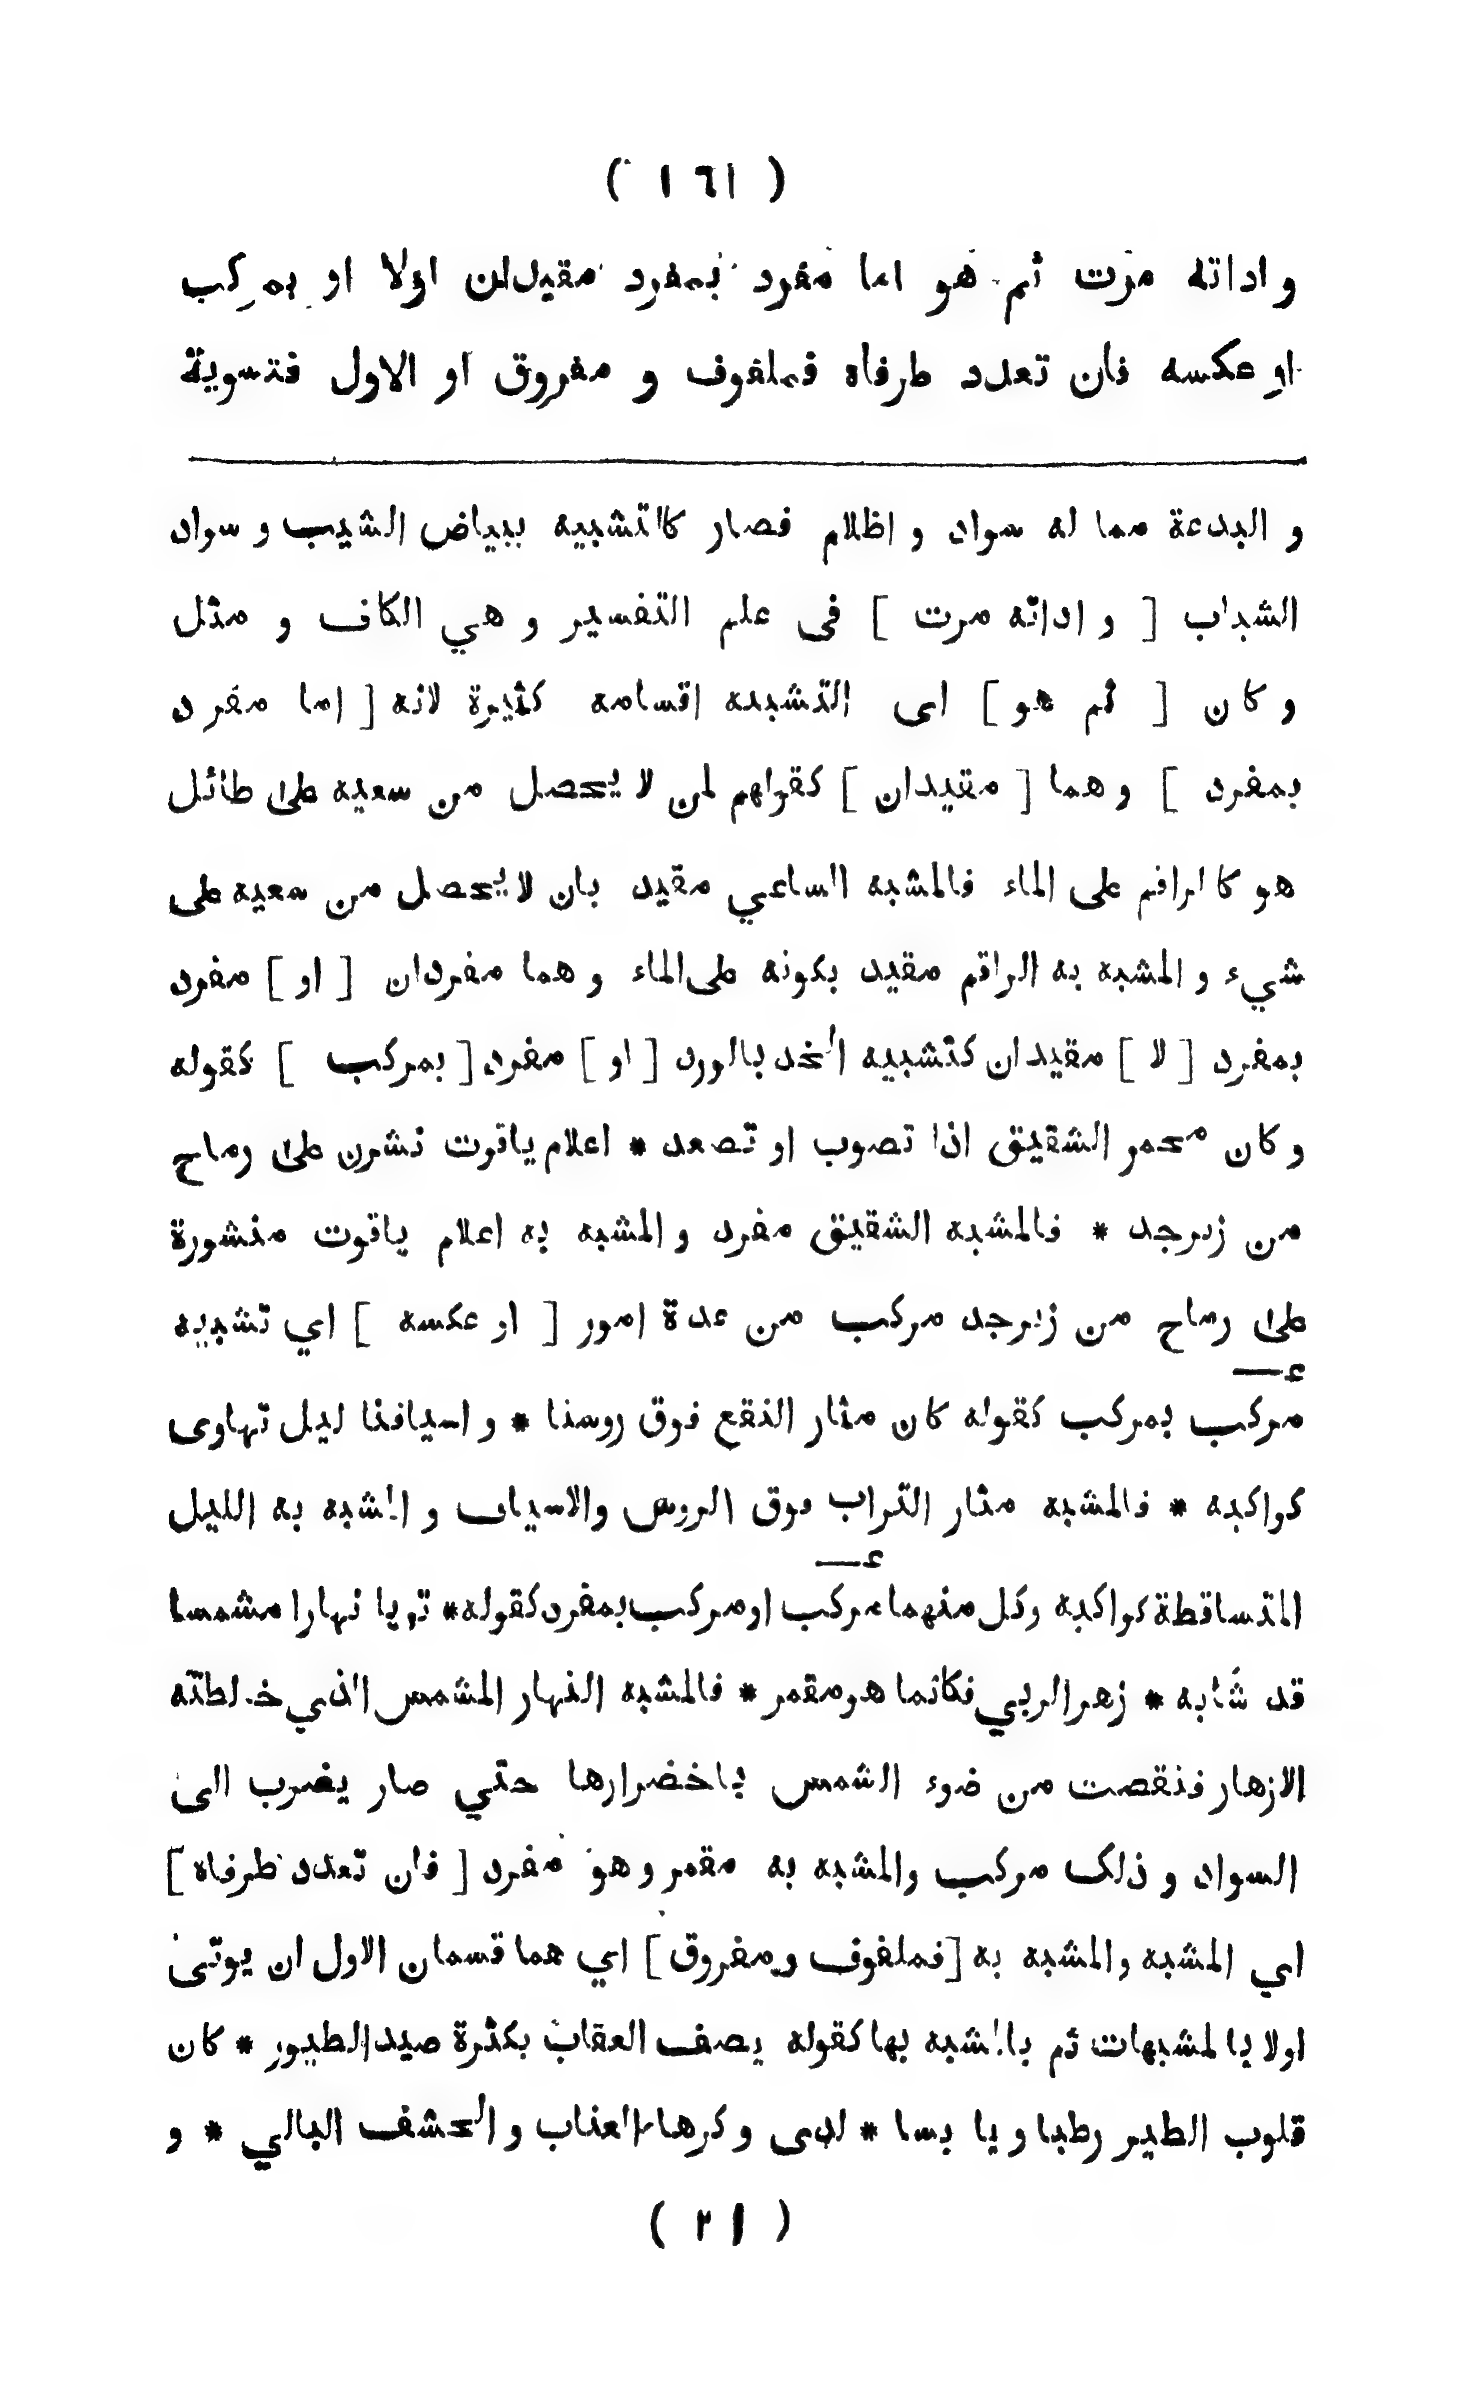 ( ١٦١ )
و اداته مرت ثم هو اما مفرد بمفرد مقيدان اولا او بمركب
او عكسه فان تعدد طرفاه فملفوف و مفروق او الاول فتسوية
و البدعة مما له سواد و اظلام فصار كالتشبيه ببياض الشيب و سواد
الشباب [ و اداته مرت ] فى علم التفسير و هي الكاف و مثل
و كان [ ثم هو ] اى التشبيه اقسامه كثيرة لانه [ اما مفرد
بمفرد ] و هما [ مقيدان ] كقولهم لمن لا يحصل من سعيه على طائل
هو كالراقم على الماء فالمشبه الساعي مقيد بان لا يحصل من سعيه على
شيء و المشبه به الراقم مقيد بكونه على الماء و هما مفردان [ او ] مفرد
بمفرد [ لا ] مقيدان كتشبيه الخد بالورد [ او ] مفرد [ بمركب ] كقوله
و كان محمر الشقيق اذا تصوب او تصعد * اعلام ياقوت نشرن على رماح
من زبرجد * فالمشبه الشقيق مفرد و المشبه به اعلام ياقوت منشورة
على رماح من زبرجد مركب من عدة امور [ او عكسه ] اي تشبيه
مركب بمركب كقوله كان مثار النقع فوق روسنا * و اسيافنا ليل تهاوى
كواكبه * فالمشبه مثار التراب فوق الروس والاسياف و المشبه به الليل
المتساقطة كواكبه وكل منهما مركب او مركب بمفرد كقوله * تريا نهارا مشمسا
قد شابه * زهر الربي فكانما هو مقمر * فالمشبه النهار المشمس الذي خالطته
الازهار فنقصت من ضوء الشمس باخضرارها حتي صار يضرب الى
السواد و ذلك مركب والمشبه به مقمر و هو مفرد [ فان تعدد طرفاه ]
اي المشبه والمشبه به [ فملفوف و مفروق ] اي هما قسمان الاول ان يوتى
اولا بالمشبهات ثم بالمشبه بها كقوله يصف العقاب بكثرة صيد الطيور * كان
قلوب الطير رطبا و يا بسا * لدى و كرها العناب و الحشف البالي * و
( ٢١ )